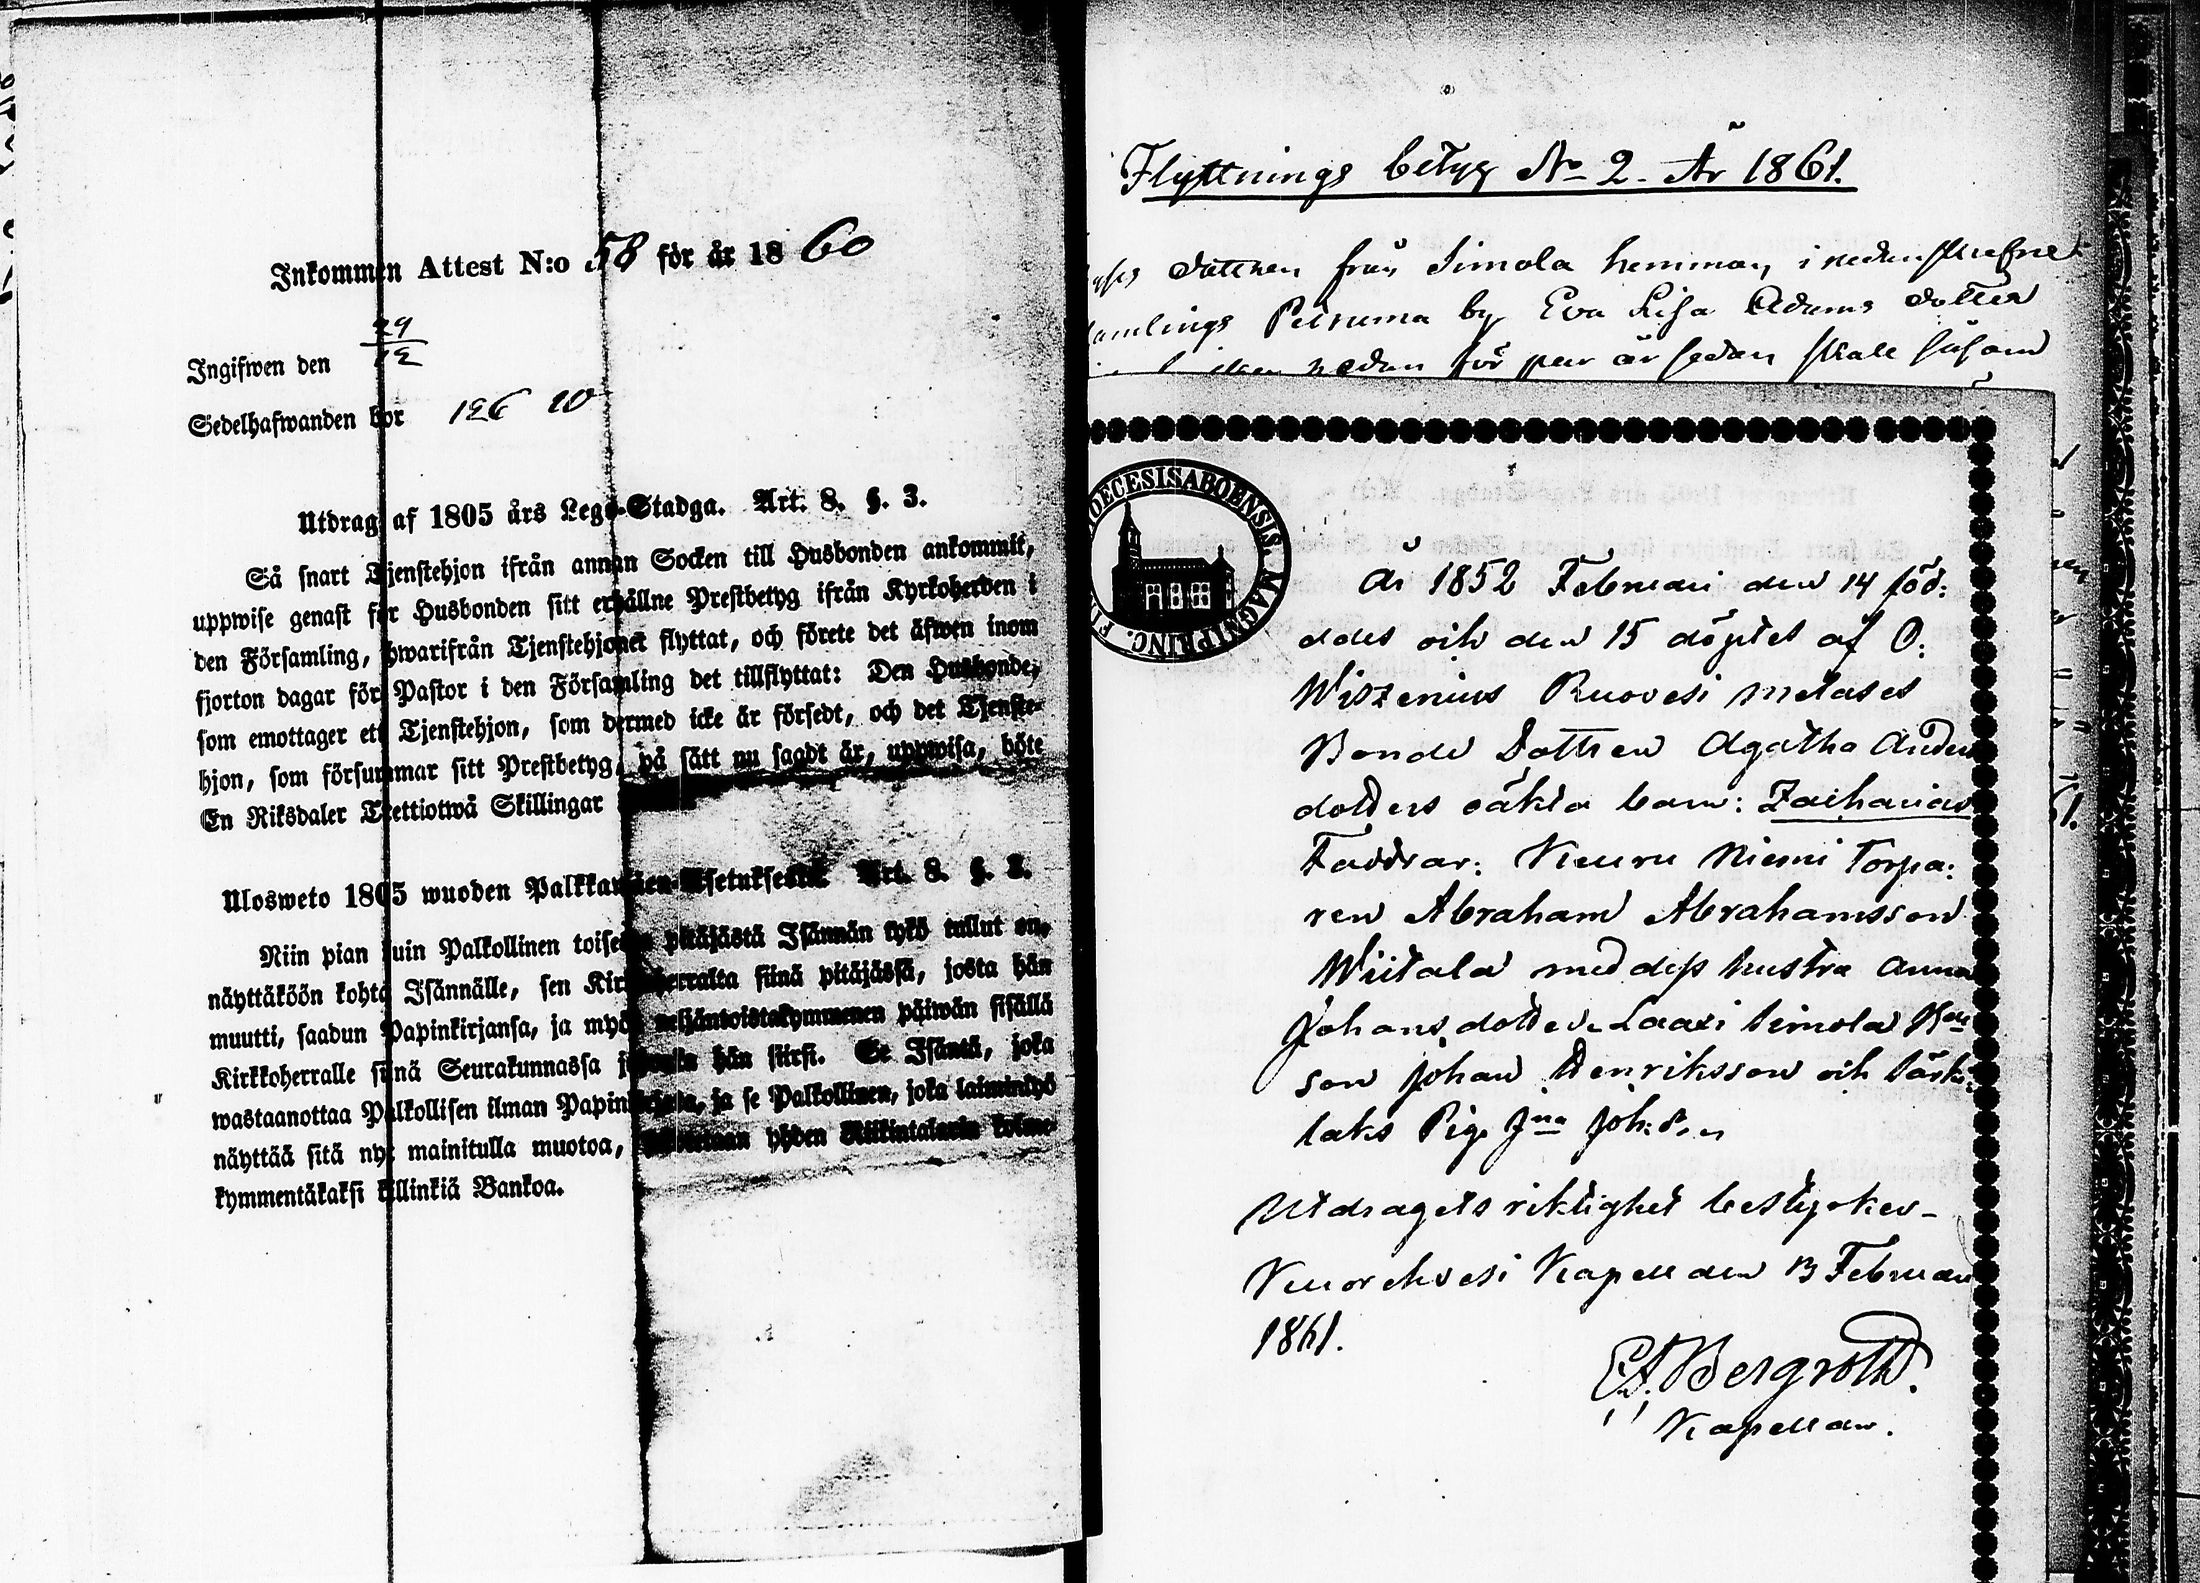 Inkommen Attest N:o 58 för år 1860
Ingifwen den 29/12
Sedelhafwanden bor 126
Utdrag af 1805 års Lego-Stadga. Art. 8. §. 3.
Så snart Tjenstehjon ifrån annan Socken till Husbonden ankommit,
uppwise genast för Husbonden sitt erhållne Prestbetyg ifrån Kyrkoherden i
den Församling, hwarifrån Tjenstehjonet flyttat, och förete det äfwen inom
fjorton dagar för Pastor i den Församling det tillflyttat: Den Husbonde,
som emottager ett Tjenstehjon, som dermed icke är försedt, och det Tjenste-
hjon, som försummar sitt Prestbetyg, på sätt nu sagdt är, uppwisa, böte
En Riksdaler Trettiotwå Skillingar
Ulosweto 1805 wuoden Palkkausten-Asetuksesta. Art. 8. §. 3.
Niin pian kuin Palkollinen toisesta pitäjästä Isännän tykö tullut on,
näyttäköön kohta Isännälle, sen Kirkkoherralta siinä pitäjässä, josta hän
muutti, saadun Papinkirjansa, ja myös neljäntoistakymmenen päiwän sisällä
Kirkkoherralle siinä Seurakunnassa johonka hän siirsi. Se Isäntä, joka
wastaanottaa Palkollisen ilman Papinkirjata, ja se Palkollinen, joka laiminlyö
näyttää sitä nyt mainitulla muotoa, yhden Riikintalarin kolme-
kymmentäkaksi killinkiä Bankoa.
Flyttnings betyg No 2. År 1861.
dottren från Simola hemman i nedanskrefne
samlings Pelruma by Eva Lisa Adams dotter
nedan för par år sedan skall såsom
DIOECESIS ABOENSIS. MAGNI PRINC.
År 1852 Februari den 14 föd:
des och den 15 döptes af O.
Wiszenius Ruovesi metases
Bonde Dottren Agatha Anders
dotters oäkta barn: Zacharias
Faddrar: Keuru Niemi Torpa:
ren Abraham Abrahamsson
Wiitala med dess hustru Anna
Johans dotter Laari Simola
son Johan Henriksson och
laks Pig. Jna Joh:
Utdragets riktighet bestyrker
Keuorehvesi Kapell den 13 Februari
1861.
E.A. Bergroth.
Kapellan.